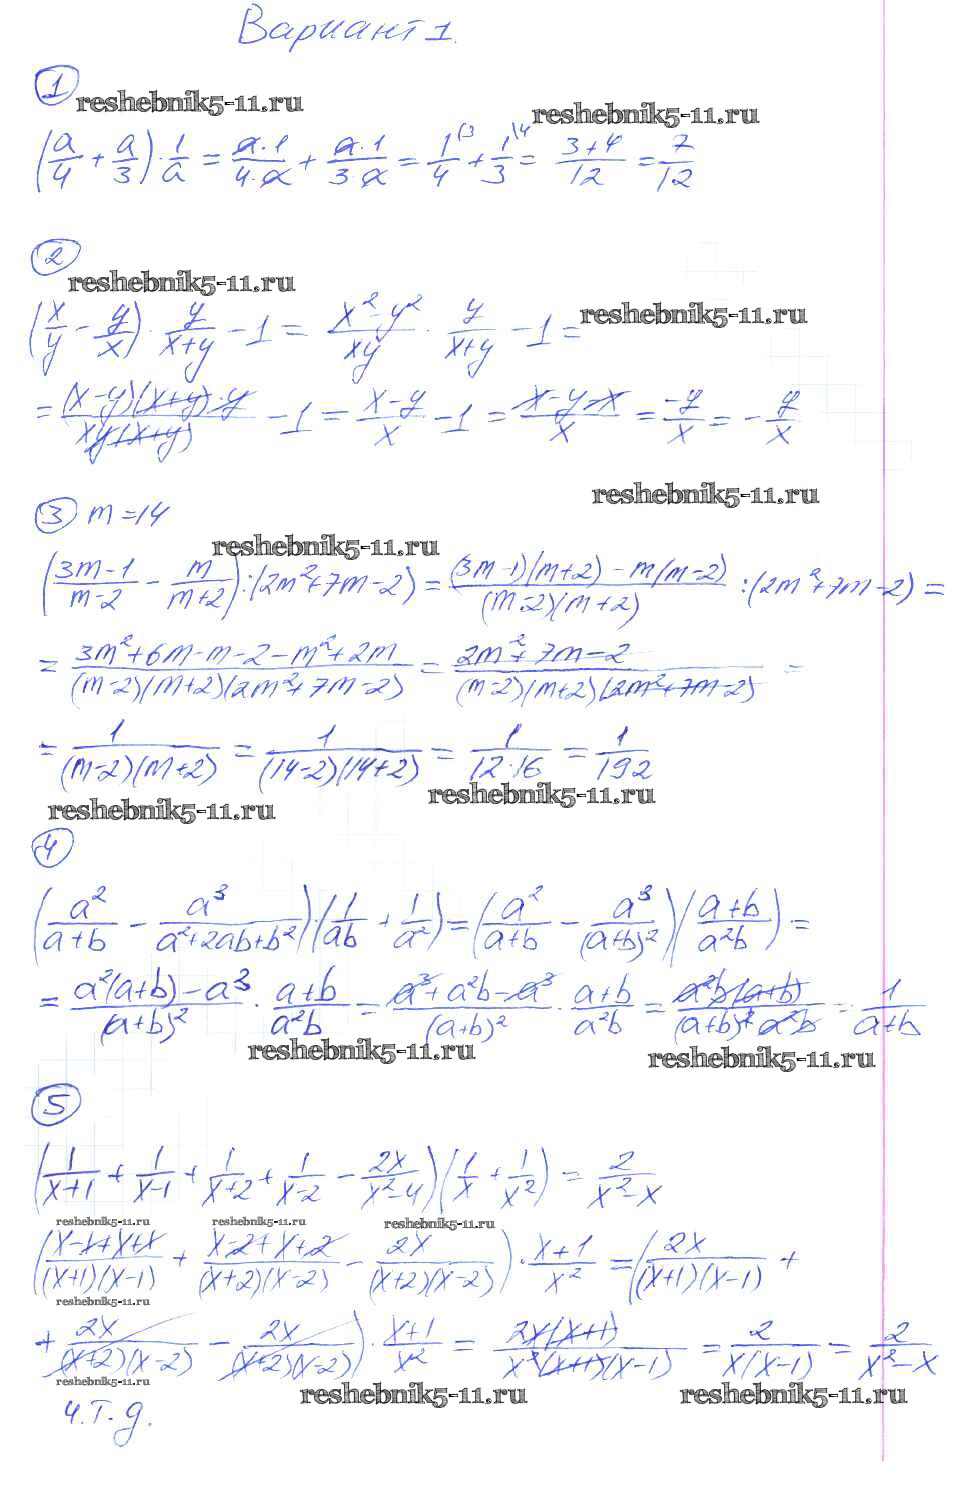 Вариант 1.
1
reshebnik5-11.ru
reshebnik5-11.ru
(a/4 + a/3) · 1/a = a·1/4·a + a·1/3·a = 1/4 \3 + 1/3 \4 = 3+4/12 = 7/12
2
reshebnik5-11.ru
(x/y − y/x) · y/x+y − 1 = x²−y²/xy · y/x+y − 1 =
reshebnik5-11.ru
= (x−y)(x+y)·y/xy(x+y) − 1 = x−y/x − 1 = x−y−x/x = −y/x = − y/x
reshebnik5-11.ru
3 m=14
reshebnik5-11.ru
(3m−1/m−2 − m/m+2) : (2m²+7m−2) = (3m−1)(m+2)−m(m−2)/(m−2)(m+2) : (2m²+7m−2) =
= 3m²+6m−m−2−m²+2m/(m−2)(m+2)(2m²+7m−2) = 2m²+7m−2/(m−2)(m+2)(2m²+7m−2) =
= 1/(m−2)(m+2) = 1/(14−2)(14+2) = 1/12·16 = 1/192
reshebnik5-11.ru
reshebnik5-11.ru
4
(a²/a+b − a³/a²+2ab+b²)·(1/ab + 1/a²) = (a²/a+b − a³/(a+b)²)(a+b/a²b) =
= a²(a+b)−a³/(a+b)² · a+b/a²b = a³+a²b−a³/(a+b)² · a+b/a²b = a²b(a+b)/(a+b)² a²b = 1/a+b
reshebnik5-11.ru
reshebnik5-11.ru
5
(1/x+1 + 1/x−1 + 1/x+2 + 1/x−2 − 2x/x²−4)(1/x + 1/x²) = 2/x²−x
reshebnik5-11.ru
reshebnik5-11.ru
reshebnik5-11.ru
(x−1+x+x/(x+1)(x−1) + x−2+x+2/(x+2)(x−2) − 2x/(x+2)(x−2)) · x+1/x² = (2x/(x+1)(x−1) +
reshebnik5-11.ru
+ 2x/(x+2)(x−2) − 2x/(x+2)(x−2)) · x+1/x² = 2x(x+1)/x²(x+1)(x−1) = 2/x(x−1) = 2/x²−x
reshebnik5-11.ru
reshebnik5-11.ru
reshebnik5-11.ru
ч.т.д.